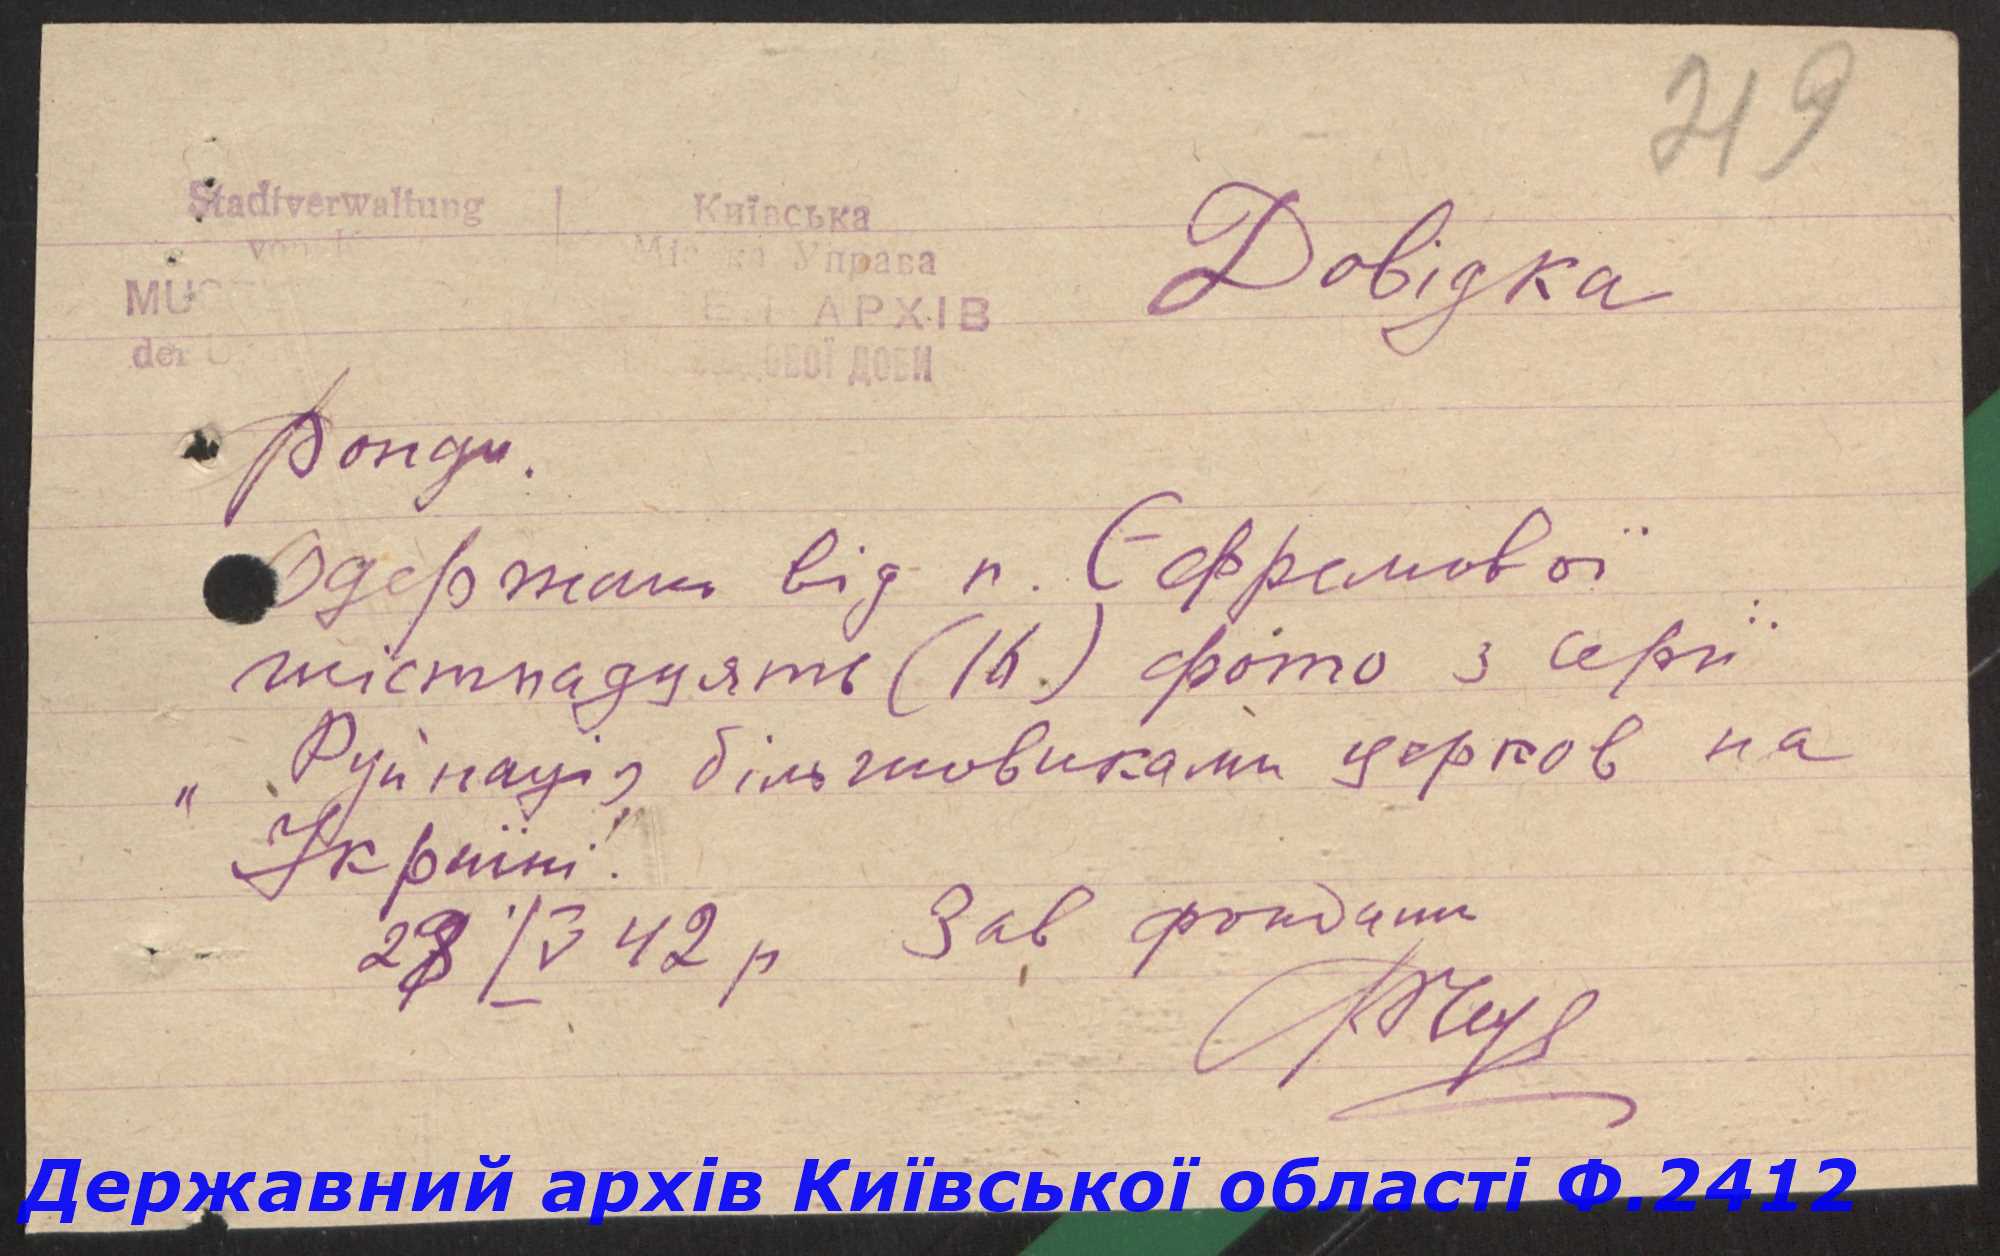 219
Stadtverwaltung
Київська
Міська Управа
MU
АРХІВ
der
ДОБИ
Довідка
Фонди.
Одержани від п. Єфремової
шістнадцять (16.) фото з серії
„Руйнація більшовиками церков на
Україні!"
28/IV 42 р Зав фондами
Державний архів Київської області Ф.2412